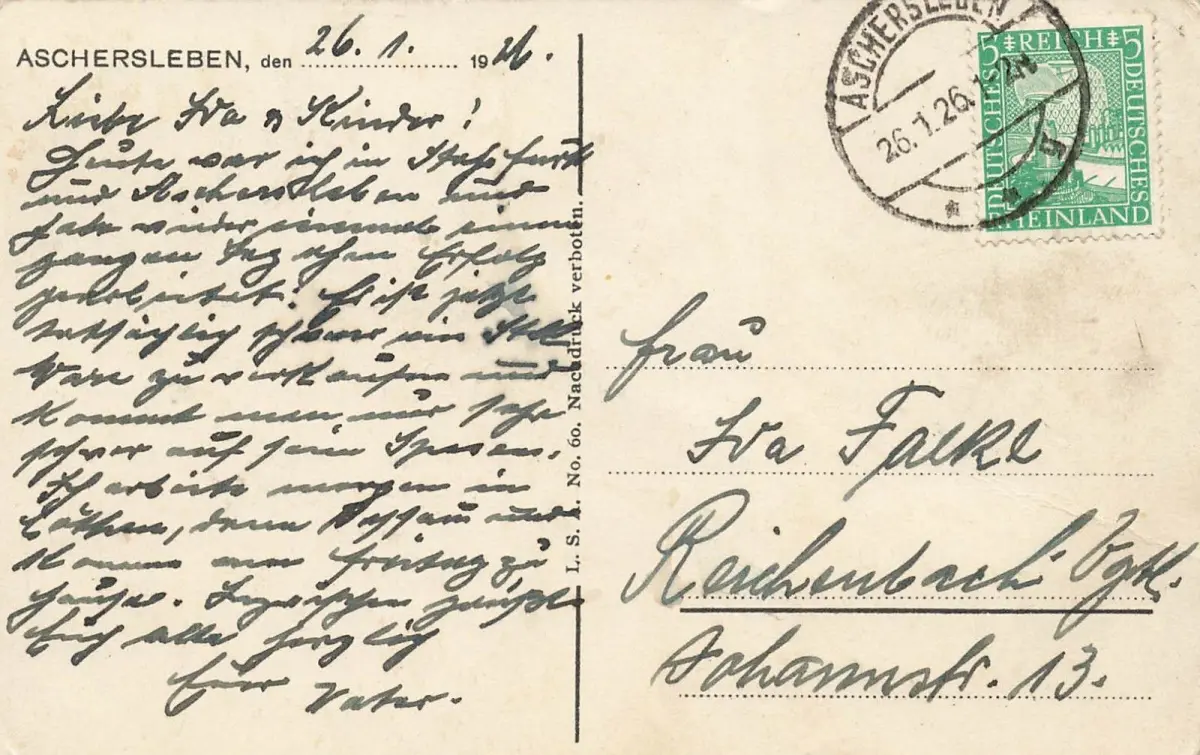 ASCHERSLEBEN, den 26. 1. 1926.
Liebe Ida u Kinder!
Heute war ich in Stassfurt
und Aschersleben und
habe wieder einmal einen
ganzen Tag ohne Erfolg
gearbeitet. Es ist jetzt
tatsächlich schwer ein Stck
Ware zu verkaufen und
kommt man nur sehr
schwer auf seine Spesen.
Ich arbeite morgen in
Cöthen, dann Dessau und
komme am Freitag zu
Hause. Inzwischen grüßt
Euch alle herzlich
Euer Vater.
L. S. A. No. 60. Nachdruck verboten.
ASCHERSLEBEN
26.1.26.
* *
5 REICH 5
DEUTSCHES
DEUTSCHES
RHEINLAND
Frau
Ida Falke
Reichenbach Vgtl.
Johannstr. 13.